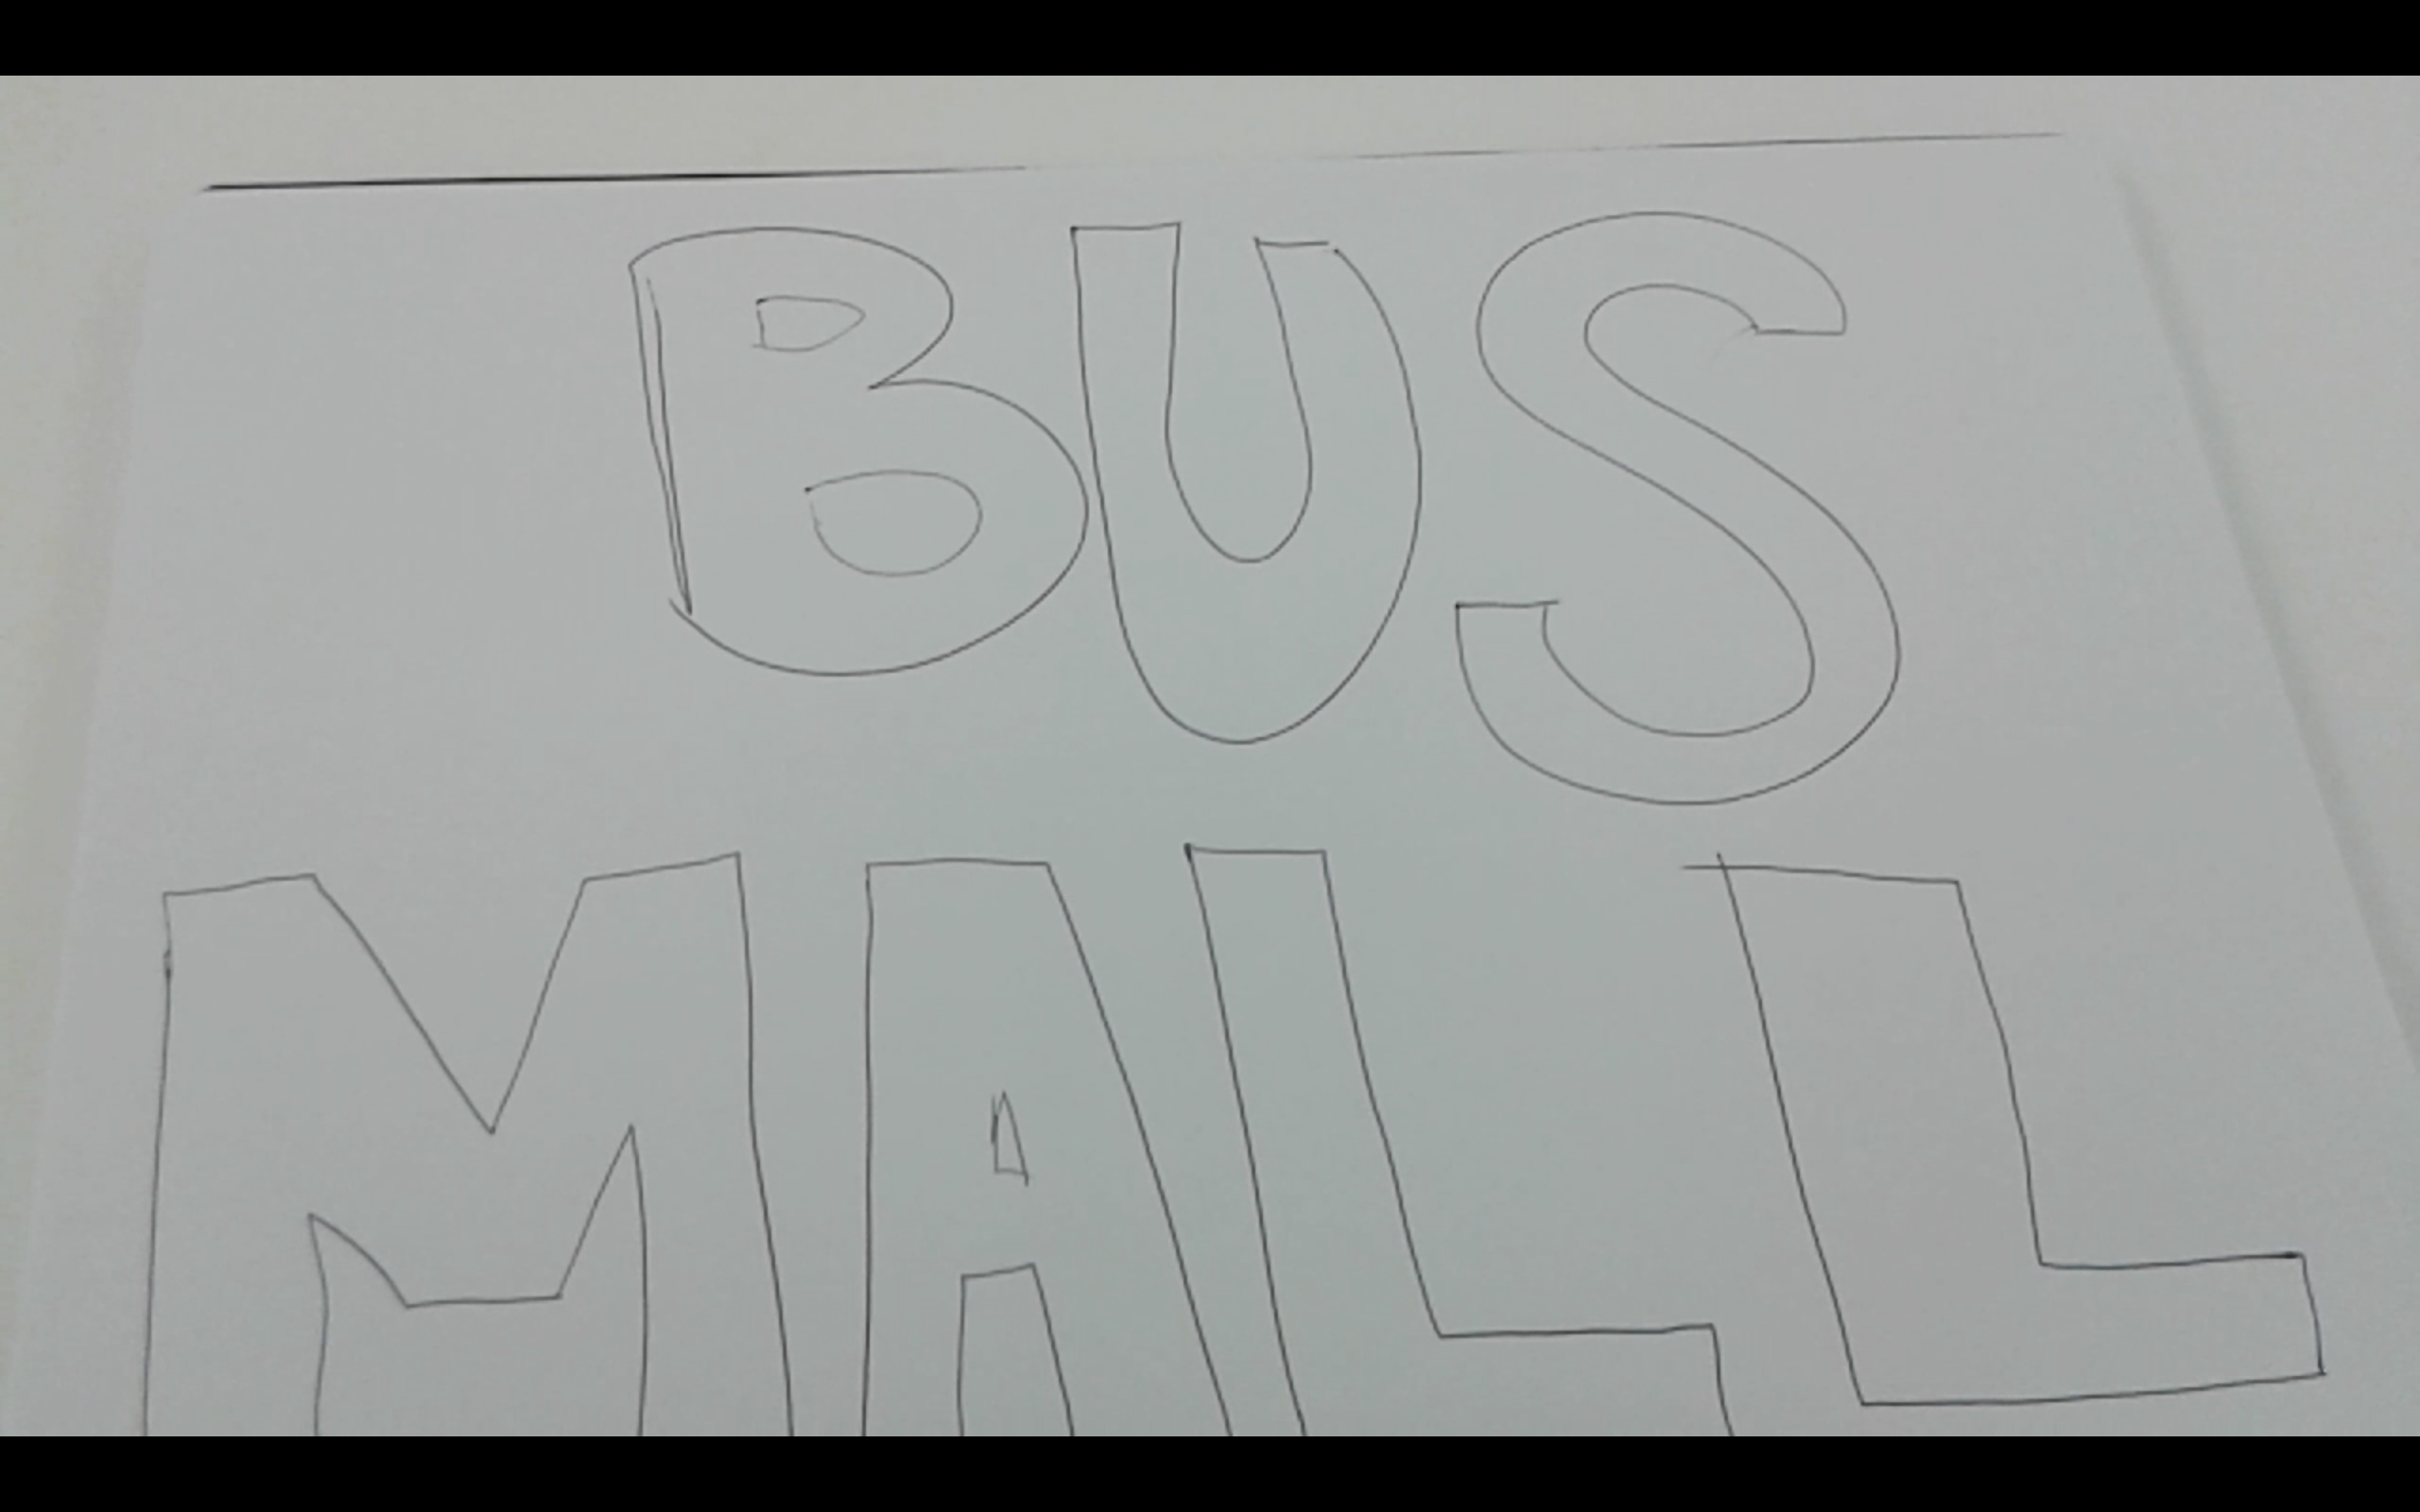 BUS
MALL